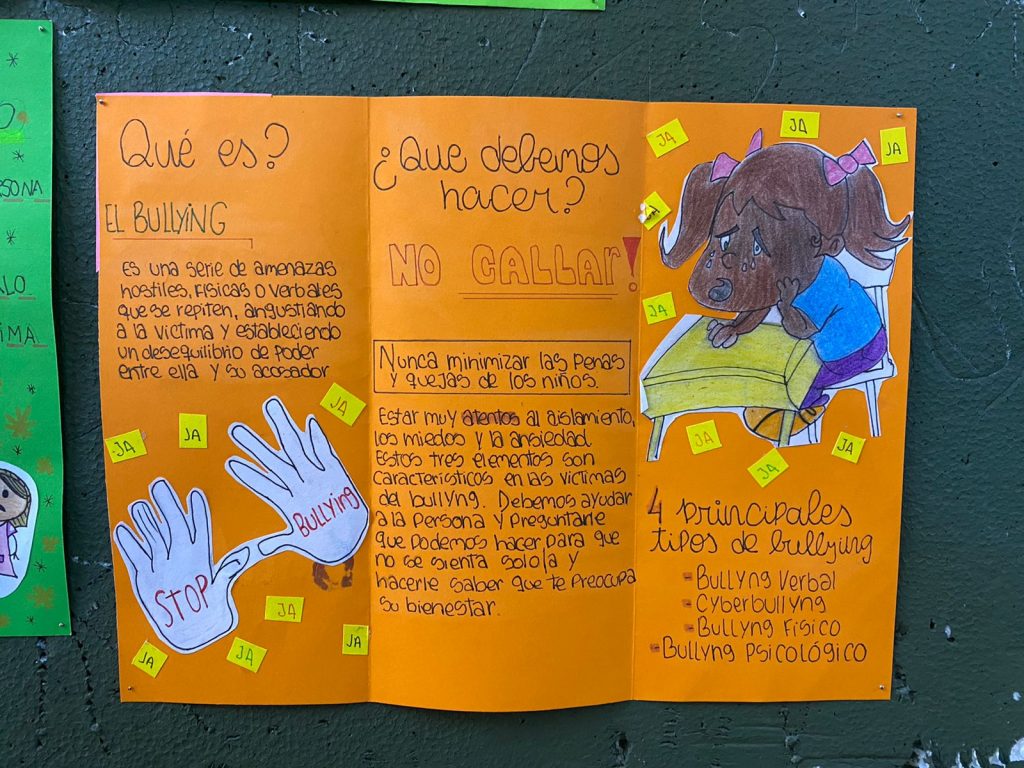 Qué es?
EL BULLYING
Es una serie de amenazas
hostiles, físicas o verbales
que se repiten, angustiando
a la victima y estableciendo
un desequilibrio de poder
entre ella y su acosador
JA
JA
JA
STOP
BULLYING
JA
JA
JA
JA
¿Que debemos
hacer?
NO CALLAr!
Nunca minimizar las penas
y quejas de los niños.
Estar muy atentos al aislamiento,
los miedos y la ansiedad
Estos tres elementos son
caracteristicos en las victimas
del bullyng. Debemos ayudar
a la persona y preguntarle
que podemos hacer para que
no se sienta solo/a y
hacerle saber que te preocupa
su bienestar.
JA
JA
JA
JA
JA
JA
JA
4 principales
tipos de bullying
- Bullyng Verbal
- Cyberbullyng
- Bullyng Físico
- Bullyng Psicológico